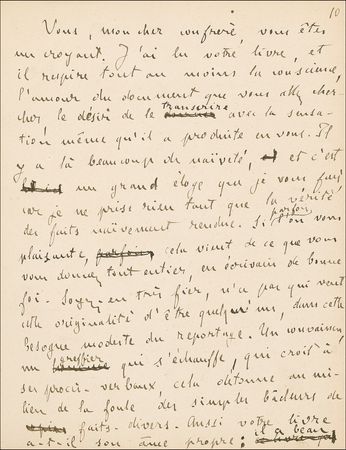 10
Vous, mon cher confrère, vous êtes
un croyant. J'ai lu votre livre, et
il respire tout au moins la conscience,
l'amour du document que vous allez cher-
cher le désir de le transcrire avec la sensa-
tion même qu'il a produite en vous. Il
y a là beaucoup de naïveté, et c'est
un grand éloge que je vous fais
car je ne prise rien tant que la vérité
des faits naïvement rendue. Si l'on vous
plaisante, parfois, cela vient de ce que vous
vous donnez tout entier, en écrivain de bonne
foi. Soyez-en très fier, n'a pas qui veut
cette originalité d'être quelqu'un, dans cette
besogne modeste du reportage. Un convaincu,
un greffier qui s'échauffe, qui croit à
ses procès-verbaux, cela détonne au mi-
lieu de la foule des simples bâcleurs de
faits-divers. Aussi votre livre
a-t-il son âme propre: il a beau